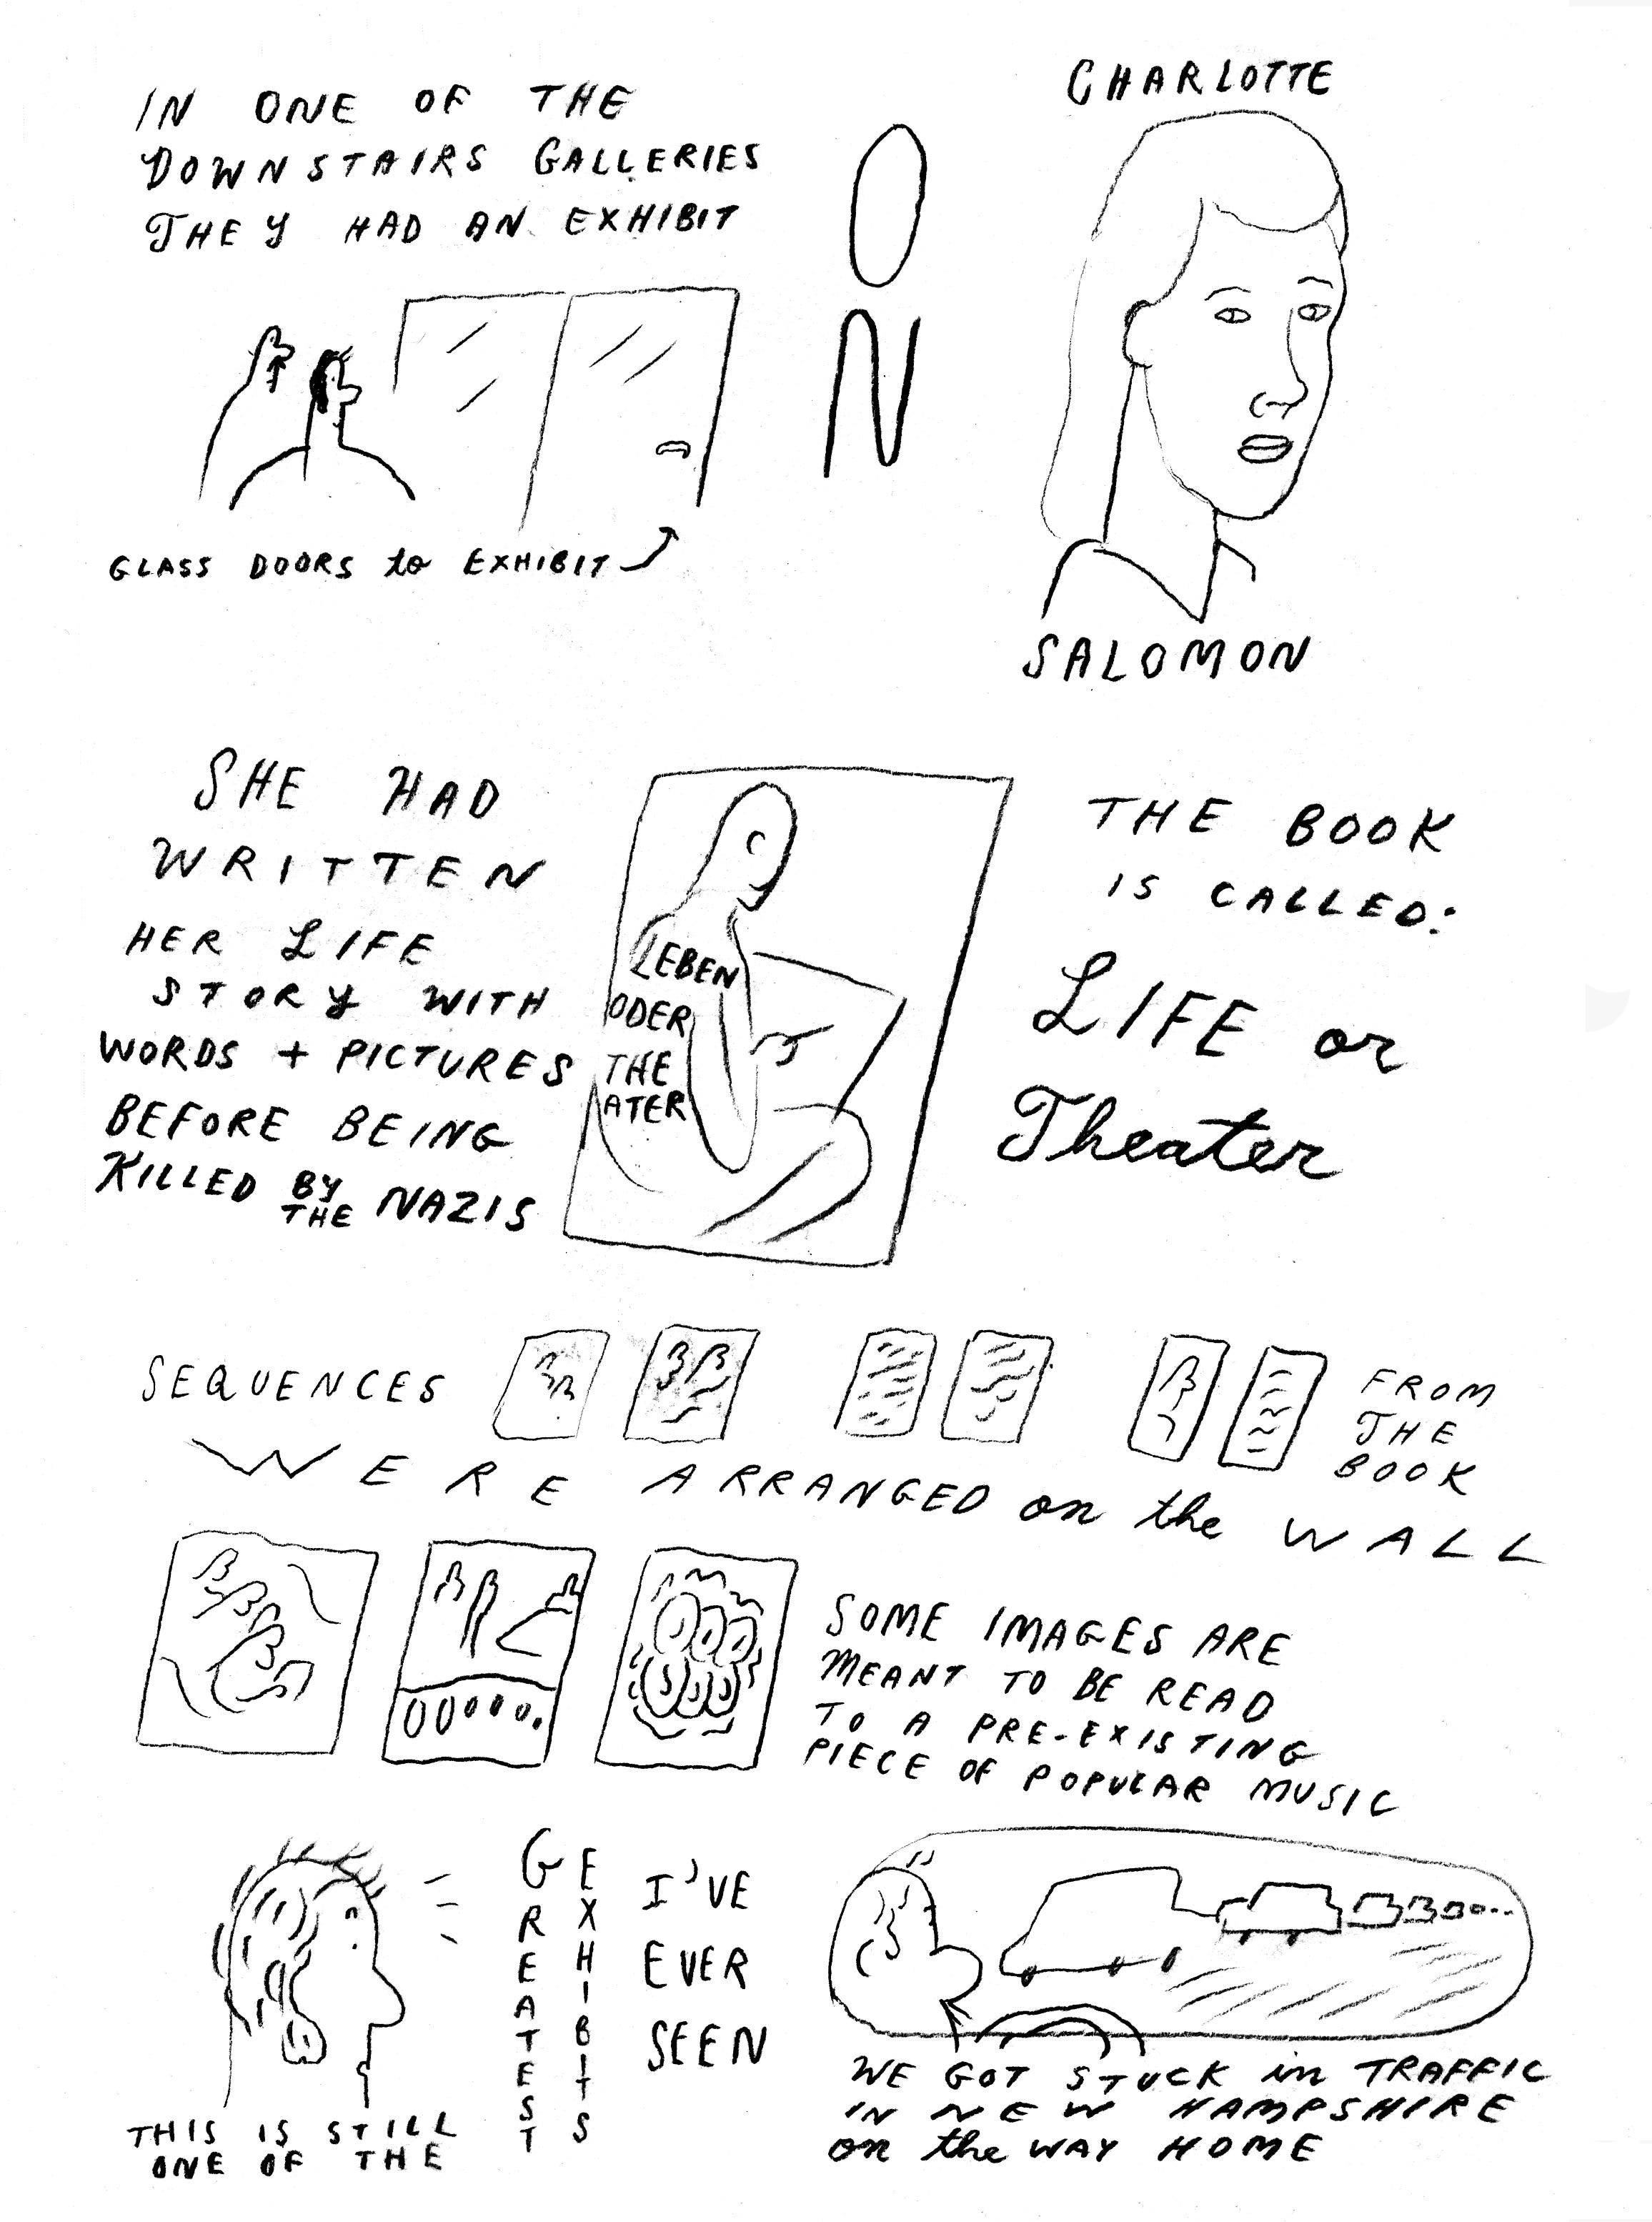 IN ONE OF THE
DOWNSTAIRS GALLERIES
THEY HAD AN EXHIBIT
GLASS DOORS to EXHIBIT
ON
CHARLOTTE
SALOMON
SHE HAD
WRITTEN
HER LIFE
STORY WITH
WORDS + PICTURES
BEFORE BEING
KILLED BY THE NAZIS
LEBEN
ODER
THE
ATER
THE BOOK
IS CALLED:
LIFE or
Theater
SEQUENCES
FROM
THE
BOOK
WERE ARRANGED on the WALL
SOME IMAGES ARE
MEANT TO BE READ
TO A PRE-EXISTING
PIECE OF POPULAR MUSIC
THIS IS STILL
ONE OF THE
GREATEST
EXHIBITS
I'VE
EVER
SEEN
WE GOT STUCK in TRAFFIC
IN NEW HAMPSHIRE
on the WAY HOME